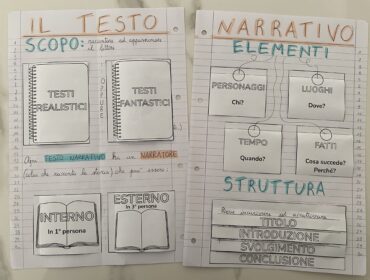 IL TESTO
SCOPO: raccontare ed appassionare
il lettore
TESTI
REALISTICI
OPPURE
TESTI
FANTASTICI
Ogni TESTO NARRATIVO ha un NARRATORE
(colui che racconta la storia) che può essere:
INTERNO
In 1° persona
ESTERNO
In 3° persona
NARRATIVO
ELEMENTI
PERSONAGGI
Chi?
LUOGHI
Dove?
TEMPO
Quando?
FATTI
Cosa succede?
Perché?
STRUTTURA
ed
TITOLO
INTRODUZIONE
SVOLGIMENTO
CONCLUSIONE